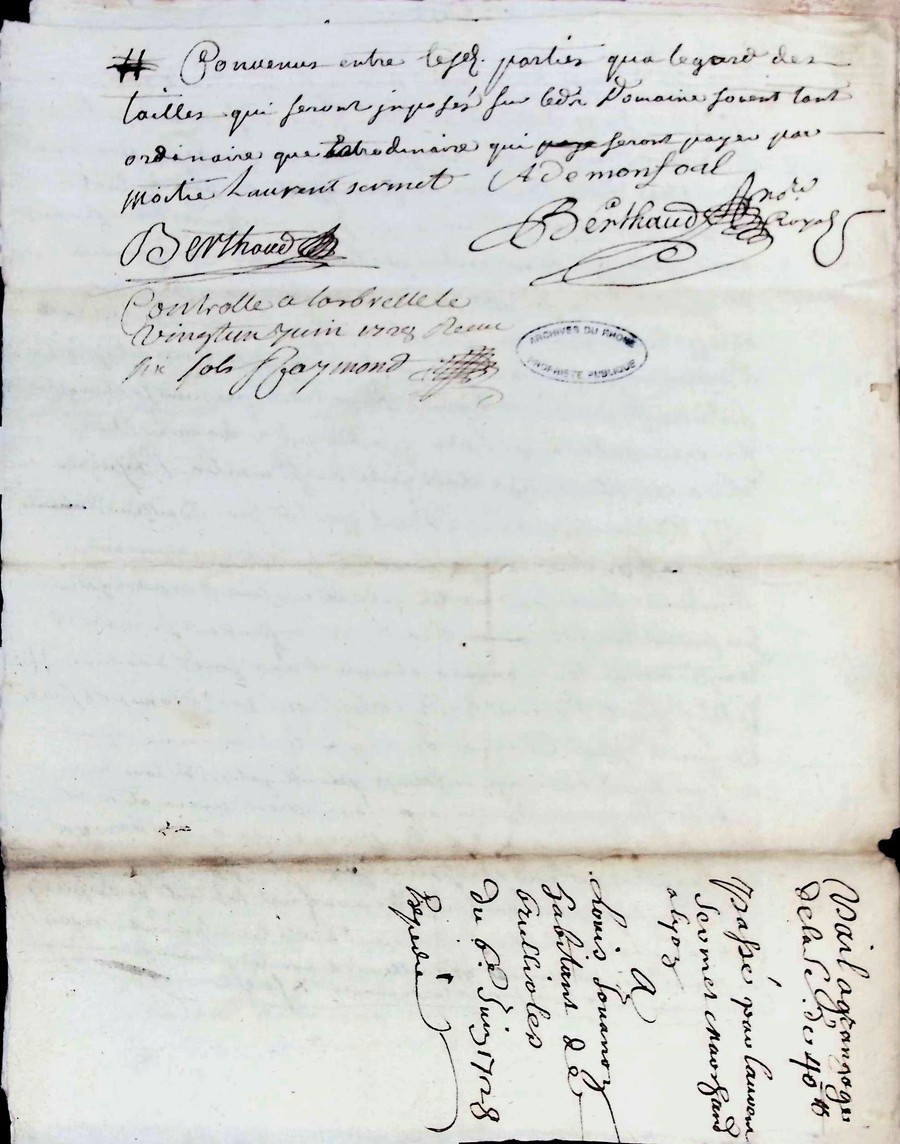 # Convenus entre lesd. parties qua legard des
tailles qui seront jnposés sur led. Domaine soient tant
ordinaire que Extrodinaire qui seront payer par
moitié Laurent sermet A De monfoal
Berthaud Berthaud no.re Royal
Controlle a Larbrelle le
vingtun Juin 1728 Receu
six sols Raymond
ARCHIVES DU RHÔNE
PROPRIÉTÉ PUBLIQUE
Bail a grangage
de la s.e de 40  tt
Passé par Laurent
Sermet Marchand
a Lyon
A
Louis Jouanon
habitant de
brullioles
Du 6.e Juin 1728
Expedié